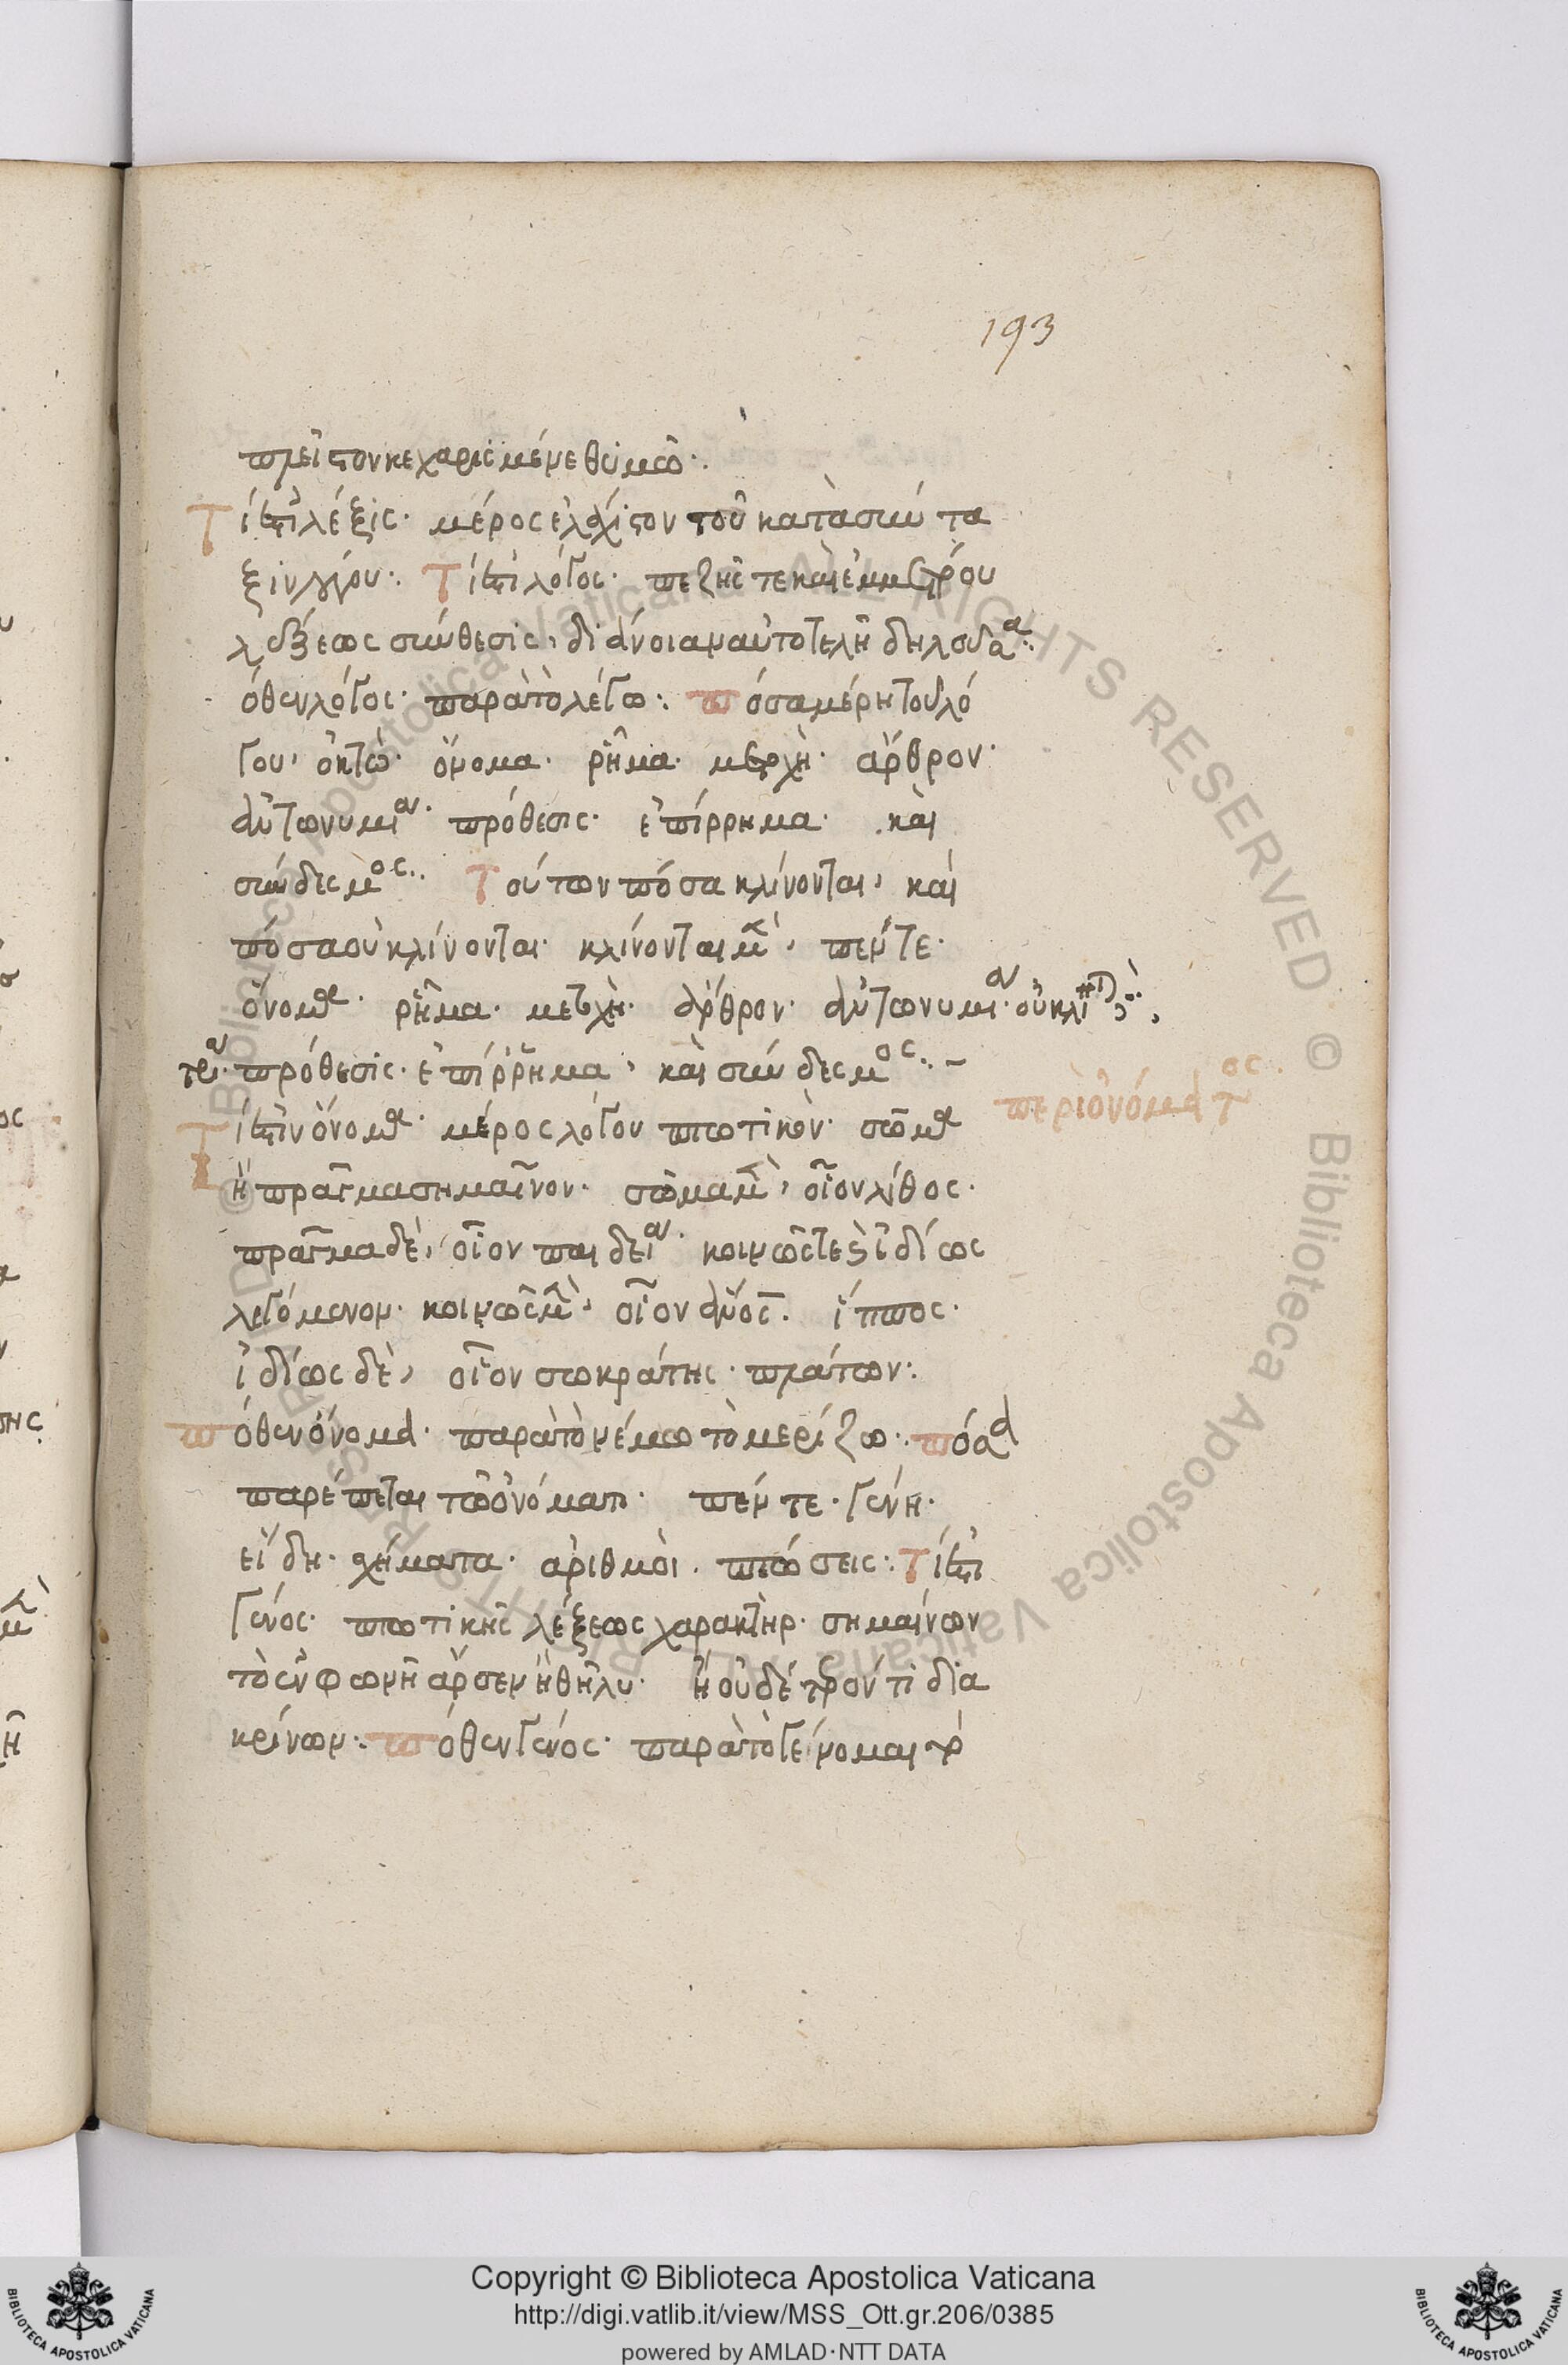 193
πλεῖστον κεχαρισμένε θυμῶ:
Τί ἐστι λέξις· μέρος ἐλάχιστον τοῦ κατὰ σύντα
ξιν λόγου: Τί ἐστι λόγος· πεζῆς τε καὶ ἐμμέτρου
λέξεως σύνθεσις, διάνοιαν αὐτοτελῆ δηλοῦσα:
ὅθεν λόγος· παρὰ τὸ λέγω: πόσα μέρη τοῦ λό
γου, ὀκτώ· ὄνομα· ῥῆμα· μετοχὴ· ἄρθρον·
ἀντωνυμία· πρόθεσις· ἐπίρρημα· καὶ
σύνδεσμος: Τούτων πόσα κλίνονται, καὶ
πόσα οὐ κλίνονται· κλίνονται μὲν, πέντε·
ὄνομα· ῥῆμα· μετοχὴ· ἄρθρον· ἀντωνυμία· οὐ κλίνονται δὲ,
τρία· πρόθεσις· ἐπίρρημα, καὶ σύνδεσμος:
περὶ ὀνόματος.
Τί ἐστιν ὄνομα· μέρος λόγου πτωτικὸν· σῶμα
ἢ πρᾶγμα σημαῖνον· σῶμα μὲν, οἷον λίθος·
πρᾶγμα δὲ, οἷον παιδεία· κοινῶς τε καὶ ἰδίως
λεγόμενον· κοινῶς μὲν, οἷον ἄνος. ἵππος·
ἰδίως δὲ, οἷον σωκράτης· πλάτων:
πόθεν ὄνομα· παρὰ τὸ νέμω τὸ μερίζω: πόσα
παρέπεται τῶ ὀνόματι· πέντε· γένη·
εἴδη· σχήματα· ἀριθμοὶ· πτώσεις: Τί ἐστι
γένος· πτωτικῆς λέξεως χαρακτὴρ· σημαίνων
τὸ ἐν φωνῆ ἄρσεν ἢ θῆλυ· ἢ οὐδέτρόν τι δια
κρίνων: πόθεν γένος· παρὰ τὸ γείνομαι τὸ
Copyright © Biblioteca Apostolica Vaticana
http://digi.vatlib.it/view/MSS_Ott.gr.206/0385
powered by AMLAD·NTT DATA